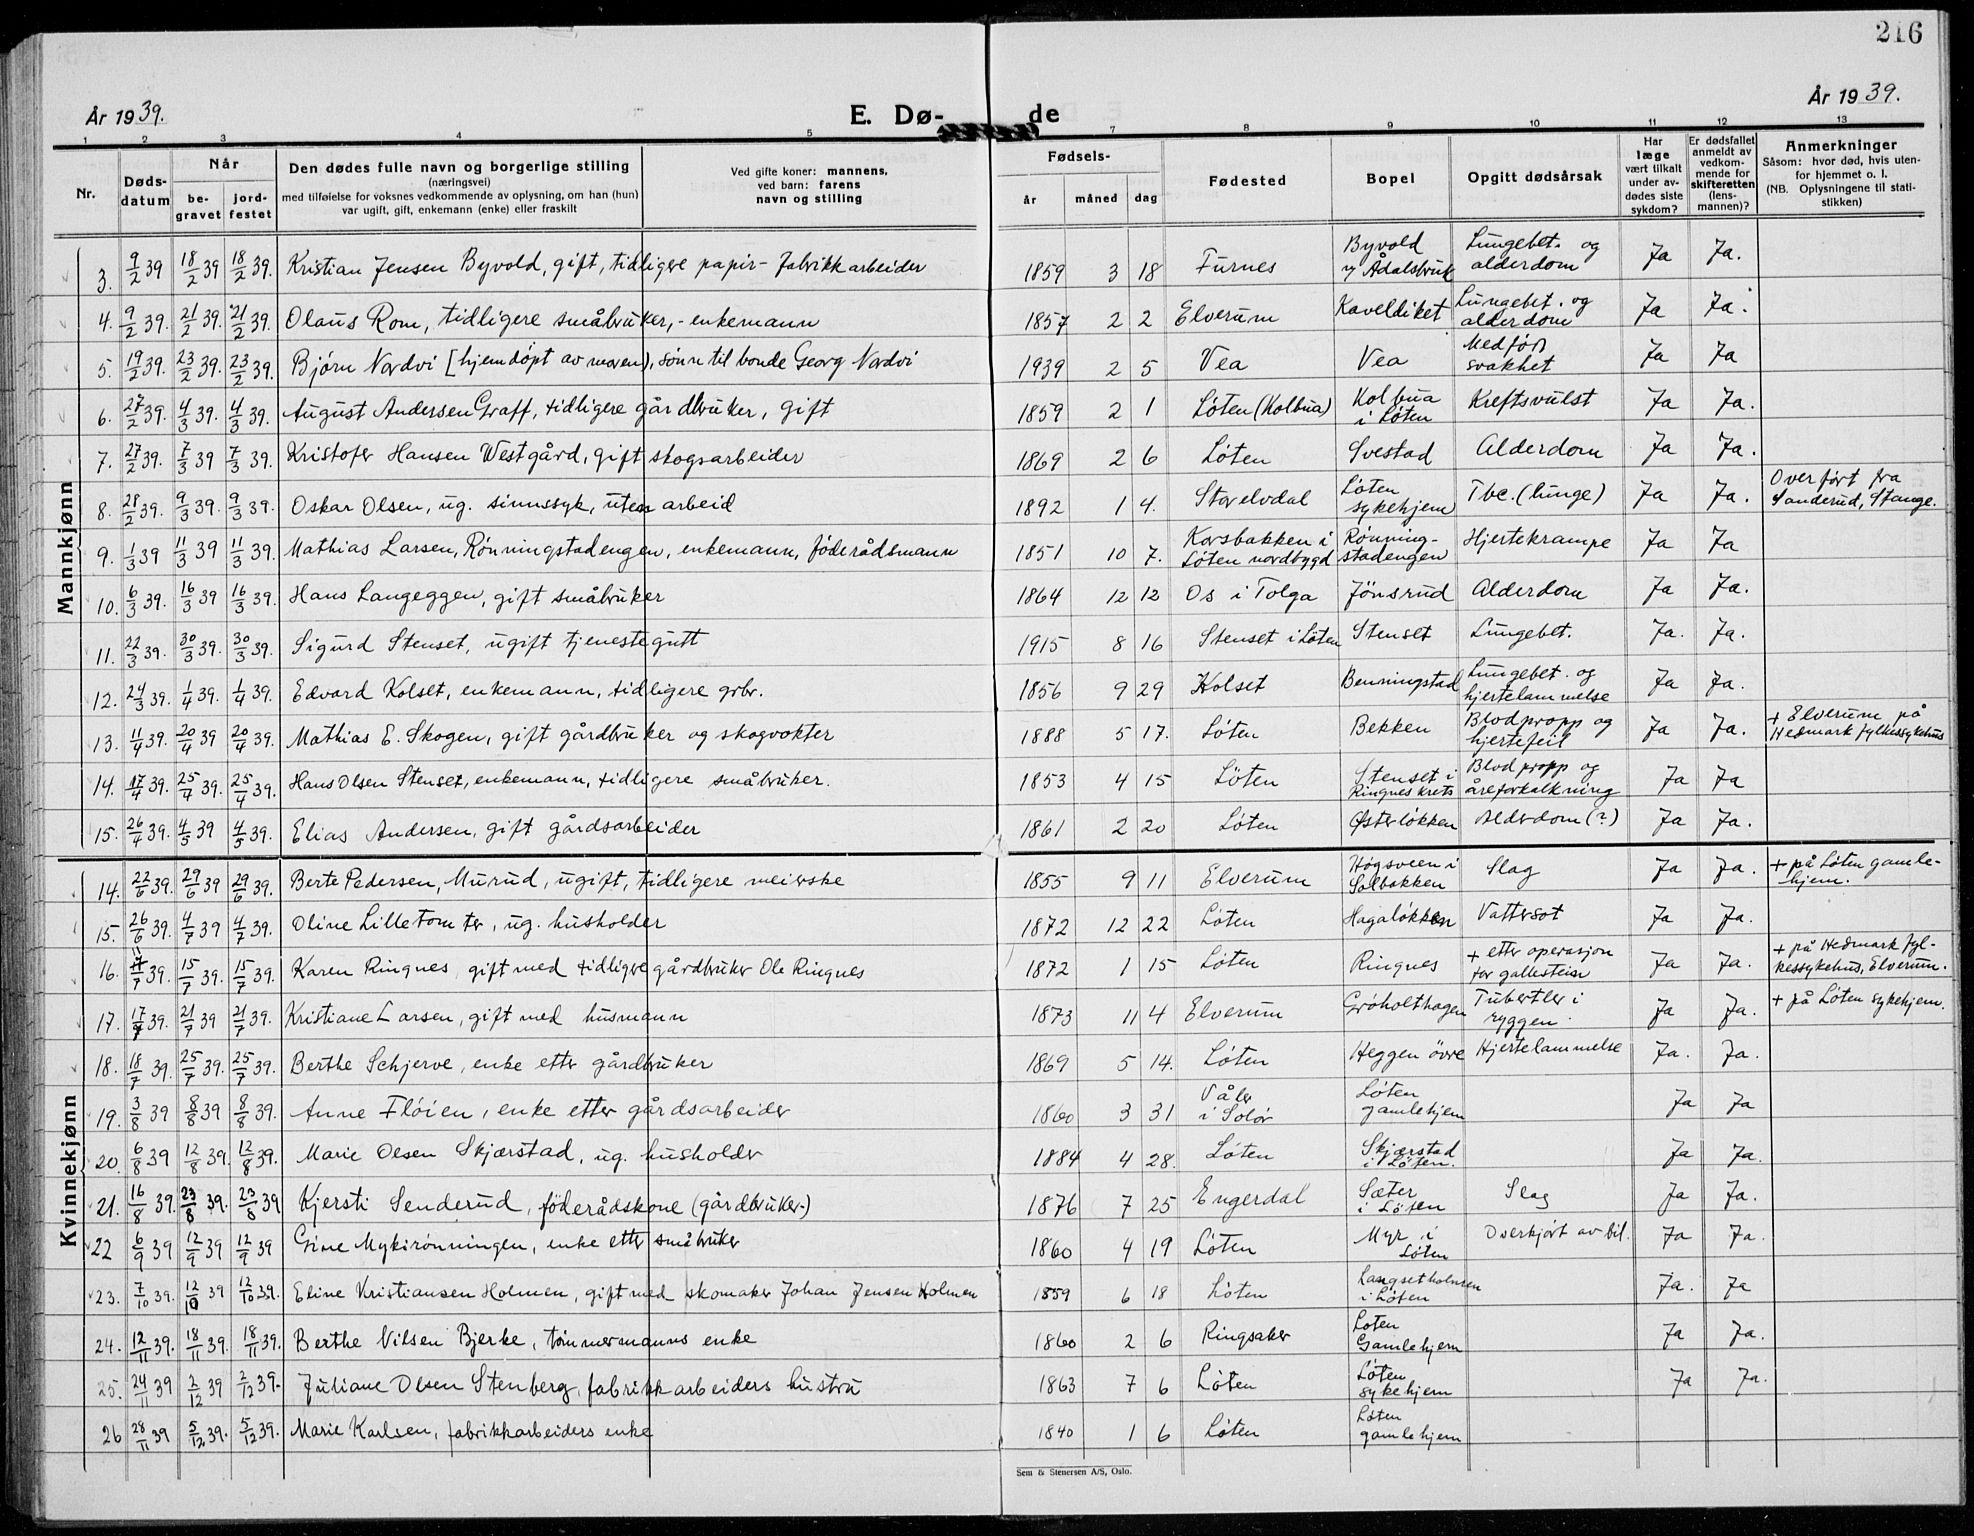 216
År 1939.
E. Dø-de
År 1939.
1 2 3 4 5 7 8 9 10 11 12 13
Nr.
Døds-datum
Når
be-gravet
jord-festet
Den dødes fulle navn og borgerlige stilling
(næringsvei)
med tilføielse for voksnes vedkommende av oplysning, om han (hun)
var ugift, gift, enkemann (enke) eller fraskilt
Ved gifte koner: mannens,
ved barn: farens
navn og stilling
Fødsels-
år måned dag
Fødested
Bopel
Opgitt dødsårsak
Har læge vært tilkalt under av-dødes siste sykdom?
Er dødsfallet anmeldt av vedkom-mende for skifteretten (lens-mannen)?
Anmerkninger
Såsom: hvor død, hvis uten-for hjemmet o. l.
(NB. Oplysningene til stati-stikken)
Mannkjønn
3. 9/2 39 18/2 39 18/2 39. Kristian Jensen Byvold, gift, tidligere papir-fabrikkarbeider 1859 3 18 Furnes Byvold v/ Ådalsbruk Lungebet. og alderdom Ja Ja.
4. 9/2 39. 21/2 39. 21/2 39. Olaus Rom, tidligere småbruker, - enkemann 1857 2 2 Elverum Kaveldiket Lungebet. og alderdom Ja Ja.
5. 19/2 39. 23/2 39. 23/2 39. Bjørn Nordvi [hjemdöpt av moren), sönn til bonde Georg Nordvi 1939 2 5 Vea Vea Medfødt svakhet Ja Ja
6. 27/2 39. 4/3 39. 4/3 39. August Andersen Graff, tidligere gårdbruker, gift 1859 2 1 Løten (Kolbua) Kolbua i Løten Kreftsvulst Ja Ja.
7. 27/2 39. 7/3 39 7/3 39. Kristofer Hansen Westgård, gift skogsarbeider 1869 2 6 Løten Svestad Alderdom Ja Ja.
8. 28/2 39. 9/3 39. 9/3 39. Oskar Olsen, ug. sinnssyk, uten arbeid 1892 1 4. Storelvdal Løten sykehjem Tbc. (lunge) Ja Ja. Overført fra Sanderud, Stange.
9. 1/3 39 11/3 39 11/3 39. Mathias Larsen, Rønningstadengen, enkemann, föderådsmann 1851 10 7. Korsbakken i Løten nordbygd Rønning-stadengen Hjertekrampe Ja Ja
10. 6/3 39. 16/3 39 16/3 39. Hans Langeggen, gift småbruker 1864 12 12 Os i Tolga Jönsrud Alderdom Ja Ja.
11. 22/3 39. 30/3 39. 30/3 39. Sigurd Stenset, ugift tjenestegutt 1915 8 16 Stenset i Løten Stenset Lungebet. Ja. Ja.
12. 24/3 39. 1/4 39. 1/4 39. Edvard Kolset, enkemann, tidligere grbr. 1856 9 29 Kolset Benningstad Lungebet. og hjertelammelse Ja Ja.
13. 11/4 39. 20/4 39 20/4 39. Mathias E. Skogen, gift gårdbruker og skogvokter 1888 5 17. Løten Bekken Blodpropp og hjertefeil Ja Ja. + Elverum på Hedmark fylkessykehus
14. 17/4 39. 25/4 39. 25/4 39. Hans Olsen Stenset, enkemann, tidligere småbruker. 1853 4 15 Løten Stenset i Ringnes krets Blodpropp og åreforkalkning Ja Ja
15. 26/4 39. 4/5 39 4/5 39. Elias Andersen, gift gårdsarbeider 1861 2 20 Løten Østerløkken Alderdom (?) Ja Ja.
Kvinnekjønn
14. 22/6 39. 29/6 39 29/6 39. Berte Pedersen, Murud, ugift, tidligere meierske 1855 9 11 Elverum Høgsveen i Solbakken Slag Ja Ja. + på Løten gamle-hjem.
15. 26/6 39. 4/7 39 4/7 39. Oline Lilletomter, ug. husholder 1872 12 22 Løten Hagaløkken Vattersot Ja Ja.
16. 11/7 39. 15/7 39. 15/7 39. Karen Ringnes, gift med tidligere gårdbruker Ole Ringnes 1872 1 15 Løten Ringnes + etter operasjon for gallestein Ja Ja. + på Hedmark fyl-kessykehus, Elverum.
17. 17/7 39. 21/7 39 21/7 39. Kristiane Larsen, gift med husmann 1873 11 4 Elverum Grøholthagen Tubertler i ryggen. Ja Ja. + på Løten sykehjem.
18. 18/7 39. 25/7 39. 25/7 39. Berthe Schjerve, enke etter gårdbruker 1869 5 14. Løten Heggen övre Hjertelammelse Ja. Ja.
19. 3/8 39 8/8 39 8/8 39. Anne Fløien, enke etter gårdsarbeider 1860 3 31 Våler i Solør Løten gamlehjem Ja Ja
20. 6/8 39 12/8 39. 12/8 39. Marie Olsen Skjærstad, ug. husholder 1884 4 28. Løten Skjærstad i Løten. Ja Ja.
21. 16/8 39. 23/8 39. 23/8 39 Kjersti Senderud, föderådskone (gårdbruker-) 1876 7 25 Engerdal Sæter i Løten Slag Ja Ja.
22 6/9 39 12/9 39 12/9 39 Gine Mykirönningen, enke etter småbruker 1860 4 19 Løten Myr i Løten Overkjørt av bil. Ja Ja.
23. 7/10 39. 12/10 39 12/10 39. Eline Kristiansen Holmen, gift med skomaker Johan Jensen Holmen 1859 6 18 Løten Langsetholmen i Løten Ja. Ja
24. 12/11 39. 18/11 39. 18/11 39. Berthe Nilsen Bjerke, tömmermanns enke 1860 2 6 Ringsaker Løten Gamlehjem Ja Ja.
25. 24/11 39 2/12 39 2/12 39. Juliane Olsen Stenberg, fabrikkarbeiders hustru 1863 7 6 Løten Løten sykehjem Ja Ja.
26 28/11 39 5/12 39. 5/12 39. Marie Karlsen, fabrikkarbeiders enke 1840 1 6 Løten Løten gamlehjem
Sem & Stenersen A/S, Oslo.